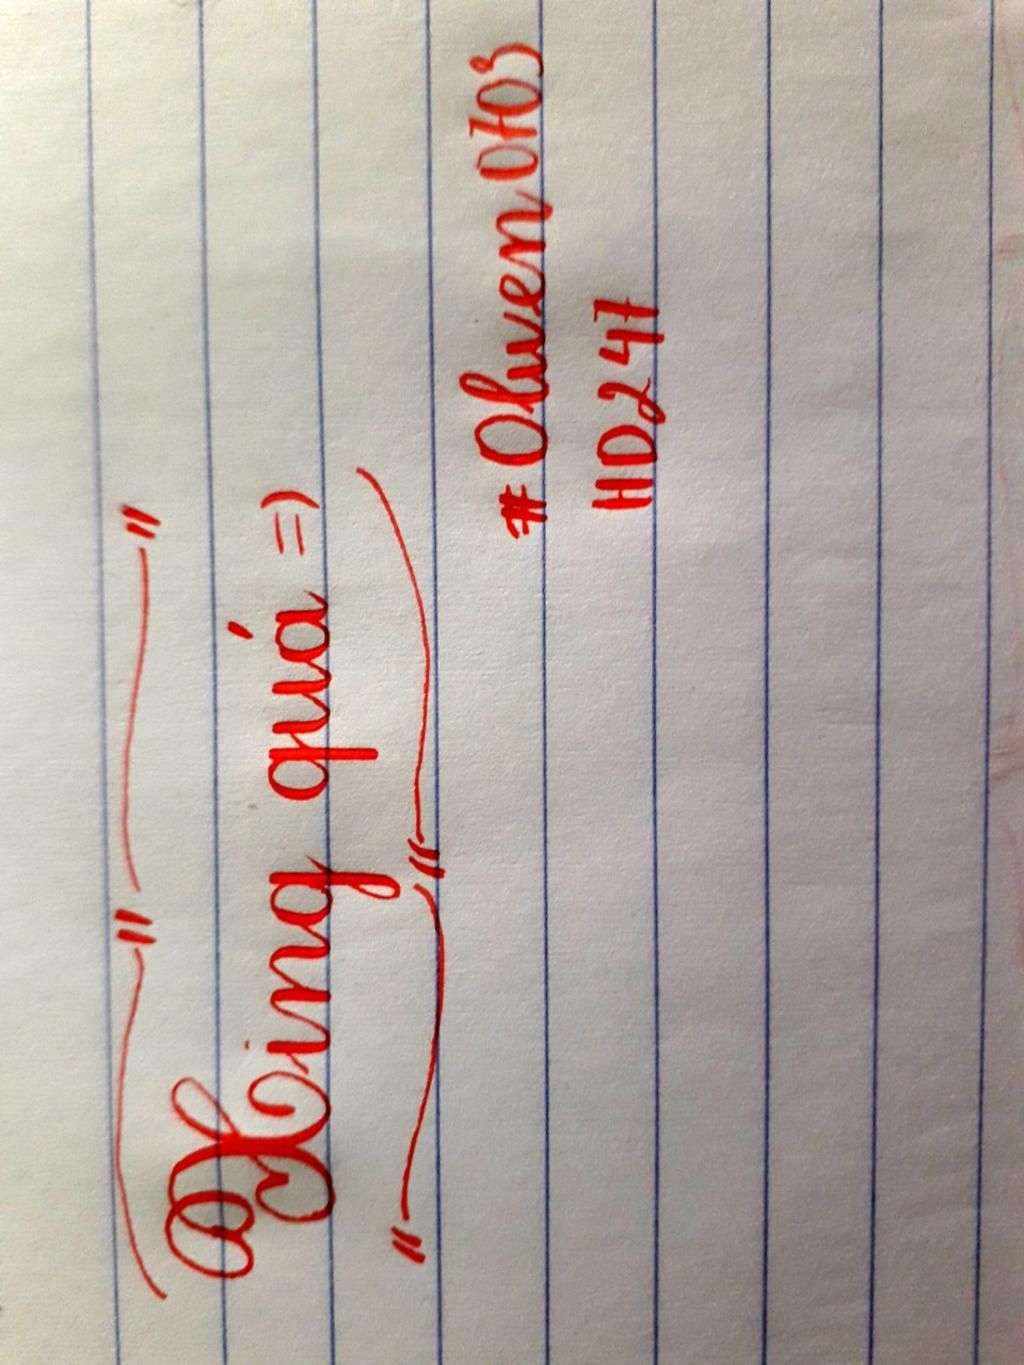 Xing quá =)
# Oliwen 0703
HD247